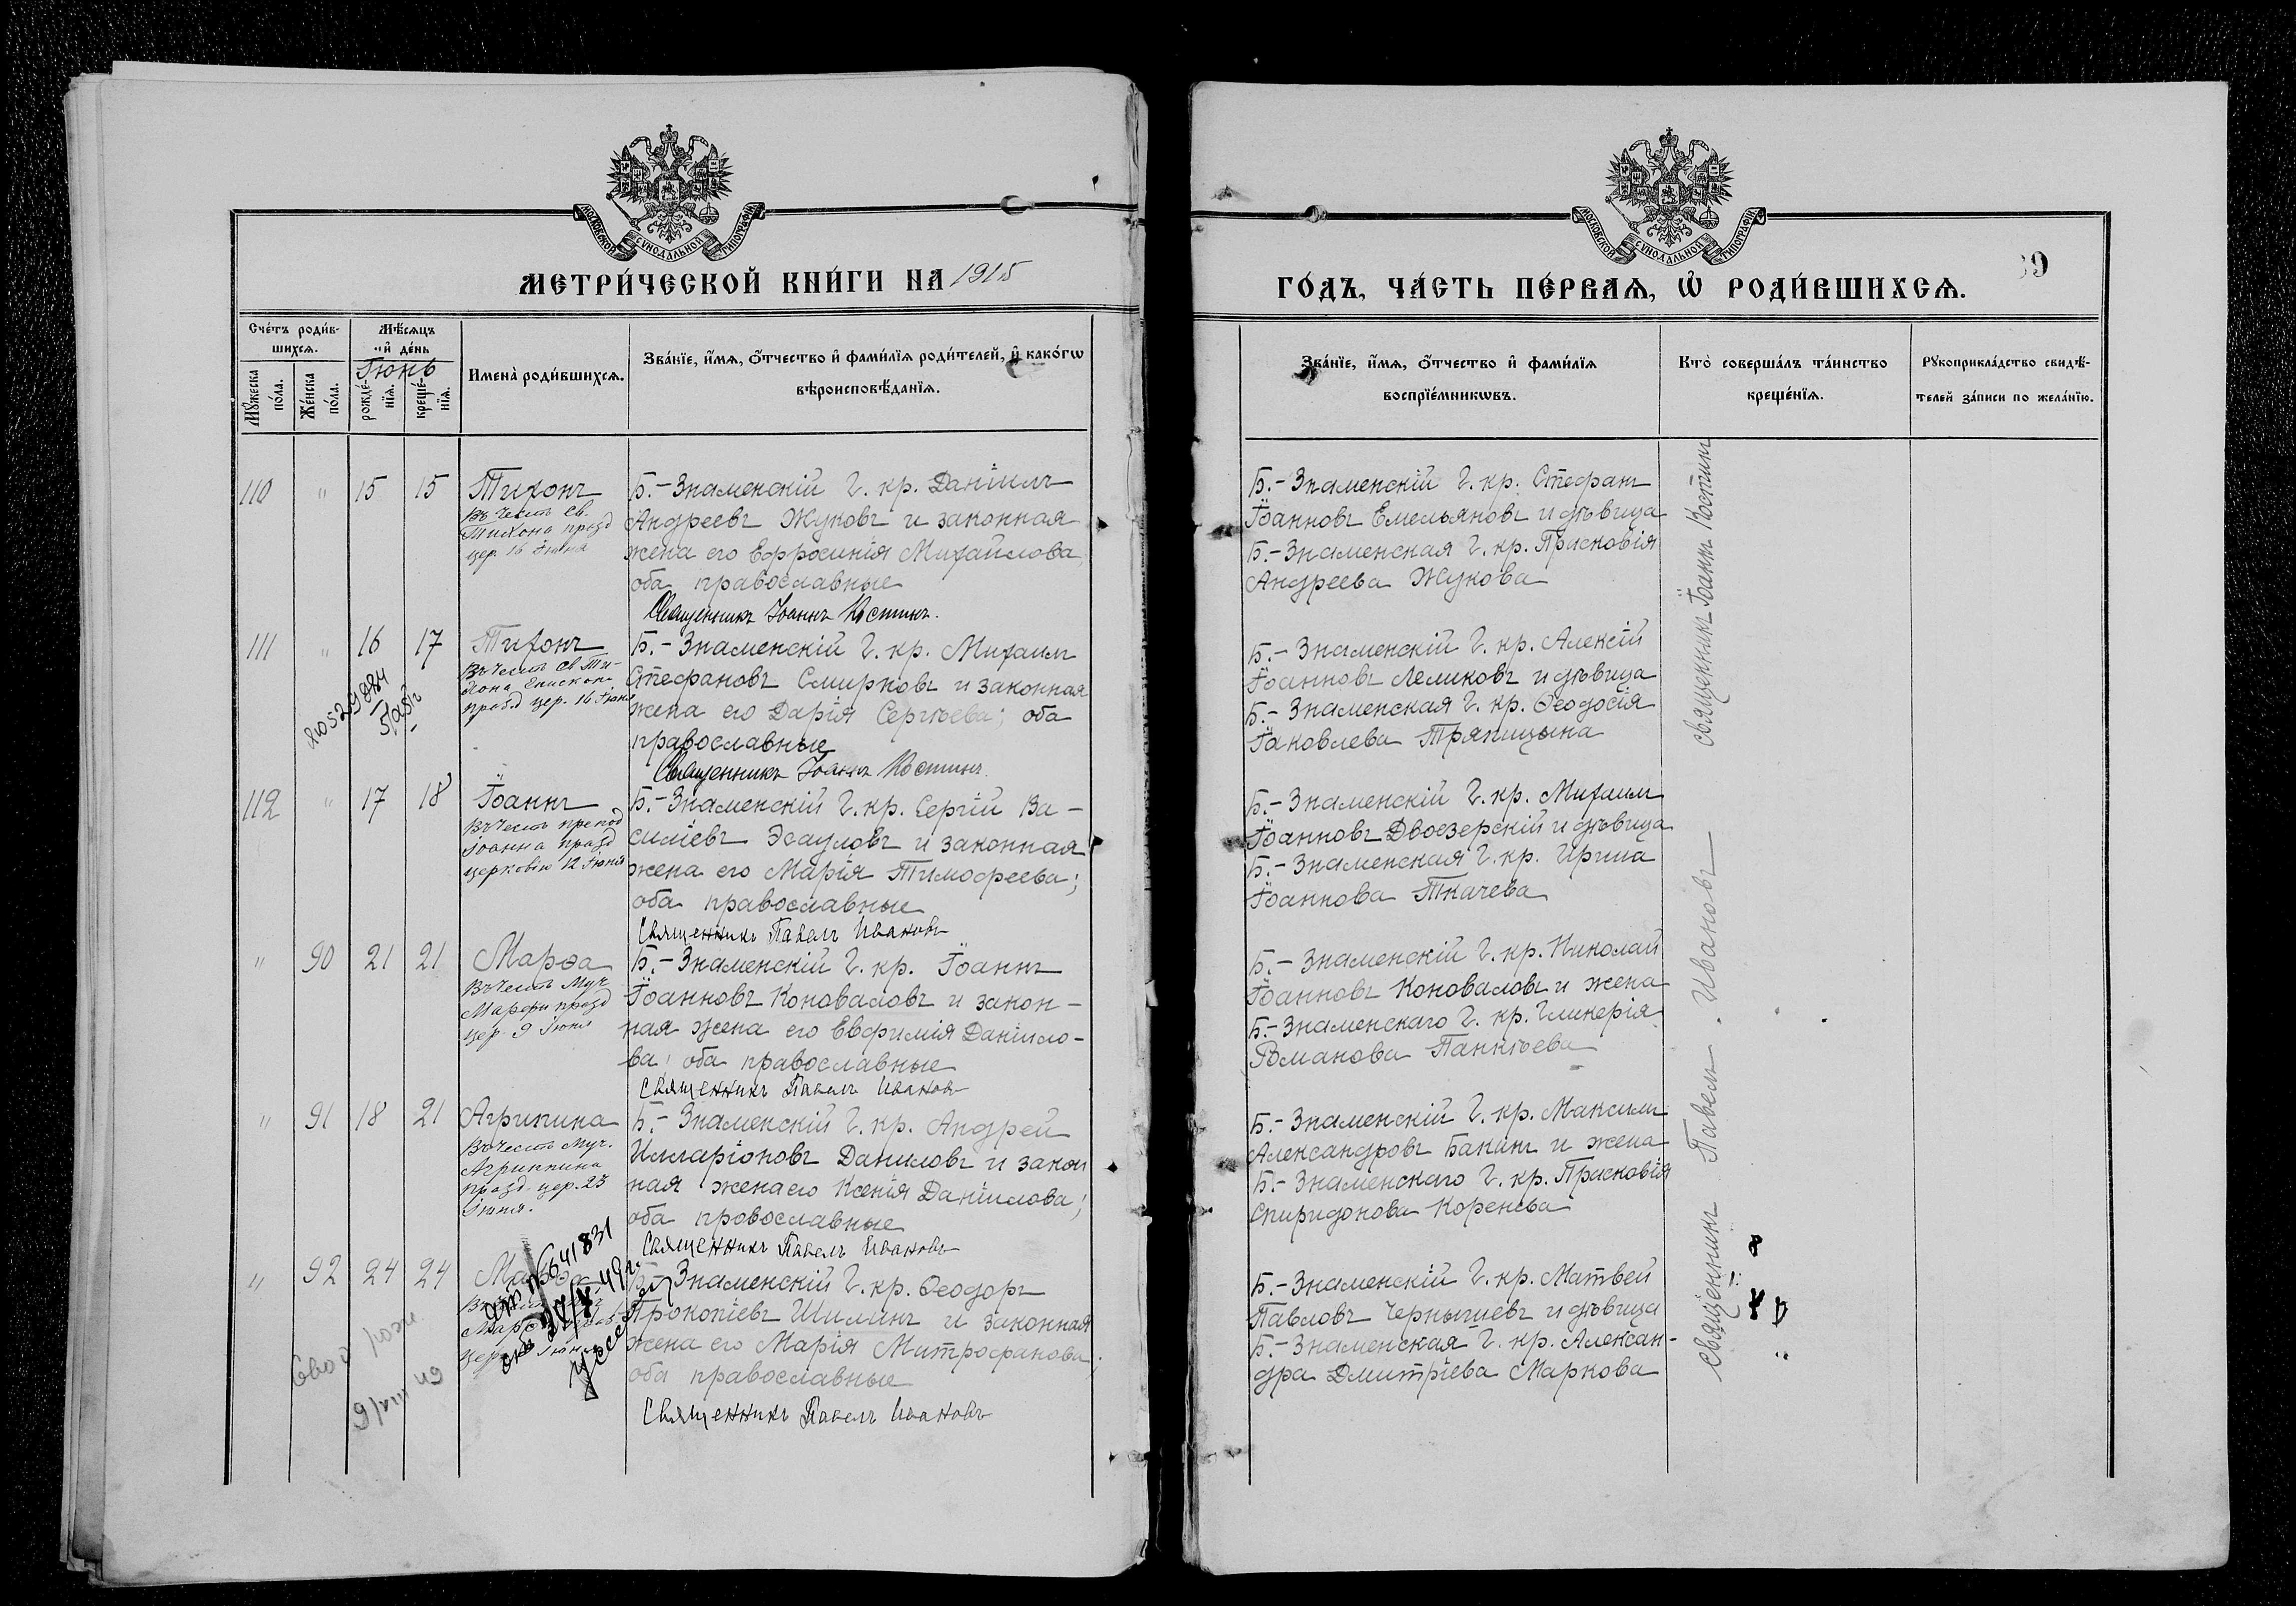 МОСКОВСКОЙ СУНОДАЛЬНОЙ ТИПОГРАФІИ
МЕТРИ́ЧЕСКОЙ КНИ́ГИ НА 1915
Сче́тъ роди́в-
шихсѧ.
Мѣ́сѧцъ
и҆ де́нь
Іюнь
Мꙋ́жеска по́ла.
Же́нска по́ла.
рожде́-нїѧ.
креще́-нїѧ.
Имена̀ роди́вшихсѧ.
Зва́нїе, и҆́мѧ, ѻ҆́тчество и҆ фами́лїѧ роди́телей, и҆ како́гѡ
вѣроисповѣ́данїѧ.
110 " 15 15 Тихонъ
Въ честь Св.
Тихона празд
цер. 16 Іюня
Б.-Знаменскій Г. кр. Даніилъ
Андреевъ Жуковъ и законная
жена его Ефросинія Михайлова
оба православные
Священникъ Іоаннъ Костинъ.
111 " 16 17 Тихонъ
Въ честь св Ти-
хона Епископа
празд цер. 16 Іюня
Б.-Знаменскій Г. кр. Михаилъ
Стефановъ Смирновъ и законная
жена его Дарія Сергѣева; оба
православные
Священникъ Іоаннъ Костинъ.
112 " 17 18 Іоаннъ
Въ честь препод
Іоанна празд
церковію 12 Іюня
Б.-Знаменскій Г. кр. Сергій Ва-
силіевъ Эсауловъ и законная
жена его Марія Тимофеева;
оба православные
Священникъ Павелъ Ивановъ
" 90 21 21 Марѳа
Въ честь Муч
Марфы празд
цер 9 Іюня
Б.-Знаменскій Г. кр. Іоаннъ
Іоанновъ Коноваловъ и закон-
ная жена его Евфимія Даніило-
ва; оба православные
Священникъ Павелъ Ивановъ
" 91 18 21 Агрипина
Въ честь Муч.
Агриппина
празд. цер. 23
Іюня.
Б.-Знаменскій Г. кр. Андрей
Илларіоновъ Даниловъ и закон
ная жена его Ксенія Даніилова;
оба провославные
Священникъ Павелъ Ивановъ
" 92 24 24
Б.-Знаменскій Г. кр. Ѳеодоръ
Прокопіевъ Шилинъ и законная
жена его Марія Митрофанова;
оба православные
Священникъ Павелъ Ивановъ
МОСКОВСКОЙ СУНОДАЛЬНОЙ ТИПОГРАФІИ
ГО́ДЪ, ЧА́СТЬ ПЕ́РВАѦ, Ѽ РОДИ́ВШИХСѦ.
Зва́нїе, и҆́мѧ, ѻ҆́тчество и҆ фами́лїѧ
воспрїе́мникѡвъ.
Кто̀ соверша́лъ та́инство
креще́нїѧ.
Рꙋкоприкла́дство свидѣ́-
телей за́писи по жела́нїю.
Б.-Знаменскій Г. кр. Стефанъ
Іоанновъ Емельяновъ и дѣвица
Б.-Знаменская Г. кр. Прасковія
Андреева Жукова
Б.-Знаменскій Г. кр. Алексій
Іоанновъ Лемиковъ и дѣвица
Б.-Знаменская Г. кр. Ѳеодосія
Іаковлева Тряпицына
Б.-Знаменскій Г. кр. Михаилъ
Іоанновъ Двоезерскій и дѣвица
Б.-Знаменская Г. кр. Ирина
Іоаннова Ткачева
Б.-Знаменскій Г. кр. Николай
Іоанновъ Коноваловъ и жена
Б.-Знаменскаго Г. кр. Гликерія
Романова Панкѣева
Б.-Знаменскій Г. кр. Максимъ
Александровъ Бакинъ и жена
Б.-Знаменскаго Г. кр. Прасковія
Спиридонова Коренева
Б.-Знаменскій Г. кр. Матвей
Павловъ Чернышевъ и дѣвица
Б.-Знаменская Г. кр. Алексан-
дра Дмитріева Маркова
священникъ Іоаннъ Костинъ
Священникъ Павелъ Ивановъ